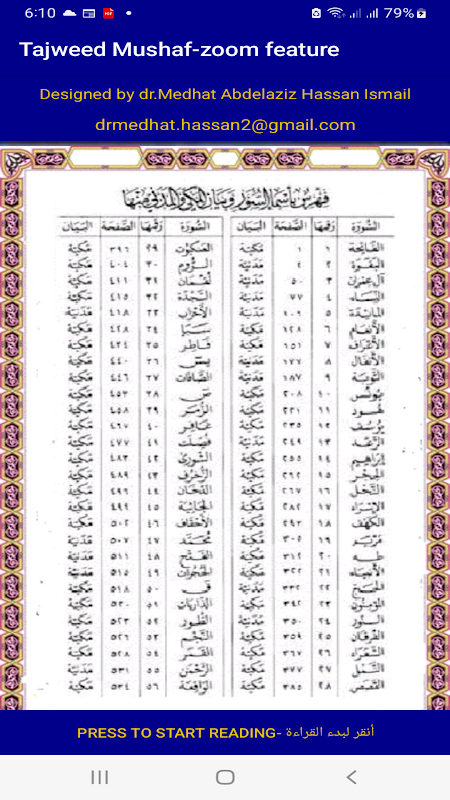 6:10 79%
Tajweed Mushaf-zoom feature
Designed by dr.Medhat Abdelaziz Hassan Ismail
drmedhat.hassan2@gmail.com
فهرس بأسماء السور وبيان المكي والمدني منها
السورة رقمها الصفحة البيان السورة رقمها الصفحة البيان
الفاتحة ١ ١ مكية العنكبوت ٢٩ ٣٩٦ مكية
البقرة ٢ ٢ مدنية الروم ٣٠ ٤٠٤ مكية
آل عمران ٣ ٥٠ مدنية لقمان ٣١ ٤١١ مكية
النساء ٤ ٧٧ مدنية السجدة ٣٢ ٤١٥ مكية
المائدة ٥ ١٠٦ مدنية الأحزاب ٣٣ ٤١٨ مدنية
الأنعام ٦ ١٢٨ مكية سبأ ٣٤ ٤٢٨ مكية
الأعراف ٧ ١٥١ مكية فاطر ٣٥ ٤٣٤ مكية
الأنفال ٨ ١٧٧ مدنية يس ٣٦ ٤٤٠ مكية
التوبة ٩ ١٨٧ مدنية الصافات ٣٧ ٤٤٦ مكية
يونس ١٠ ٢٠٨ مكية ص ٣٨ ٤٥٣ مكية
هود ١١ ٢٢١ مكية الزمر ٣٩ ٤٥٨ مكية
يوسف ١٢ ٢٣٥ مكية غافر ٤٠ ٤٦٧ مكية
الرعد ١٣ ٢٤٩ مدنية فصلت ٤١ ٤٧٧ مكية
إبراهيم ١٤ ٢٥٥ مكية الشورى ٤٢ ٤٨٣ مكية
الحجر ١٥ ٢٦٢ مكية الزخرف ٤٣ ٤٨٩ مكية
النحل ١٦ ٢٦٧ مكية الدخان ٤٤ ٤٩٦ مكية
الإسراء ١٧ ٢٨٢ مكية الجاثية ٤٥ ٤٩٩ مكية
الكهف ١٨ ٢٩٣ مكية الأحقاف ٤٦ ٥٠٢ مكية
مريم ١٩ ٣٠٥ مكية محمد ٤٧ ٥٠٧ مدنية
طه ٢٠ ٣١٢ مكية الفتح ٤٨ ٥١١ مدنية
الأنبياء ٢١ ٣٢٢ مكية الحجرات ٤٩ ٥١٥ مدنية
الحج ٢٢ ٣٣٢ مدنية ق ٥٠ ٥١٨ مكية
المؤمنون ٢٣ ٣٤٢ مكية الذاريات ٥١ ٥٢٠ مكية
النور ٢٤ ٣٥٠ مدنية الطور ٥٢ ٥٢٣ مكية
الفرقان ٢٥ ٣٥٩ مكية النجم ٥٣ ٥٢٦ مكية
الشعراء ٢٦ ٣٦٧ مكية القمر ٥٤ ٥٢٨ مكية
النمل ٢٧ ٣٧٧ مكية الرحمن ٥٥ ٥٣١ مدنية
القصص ٢٨ ٣٨٥ مكية الواقعة ٥٦ ٥٣٤ مكية
PRESS TO START READING- أنقر لبدء القراءة